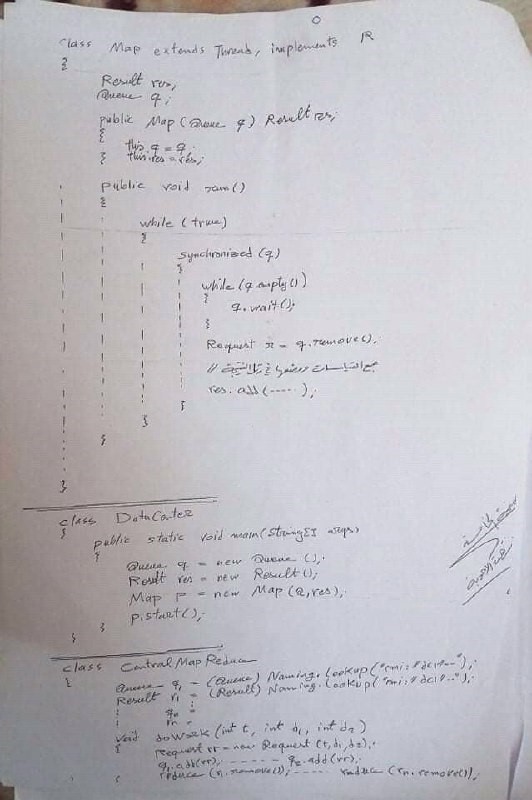 class Map extends Thread, implements R
{
Result res;
Queue q;
public Map(Queue q) Result res;
{
this.q = q;
} this.res = res;
public void run()
{
while (true)
{
synchronized (q)
{
while (q.empty())
{
q.wait();
}
Request r = q.remove();
//
res.add(-----);
}
}
}
}
class DataCenter
{
public static void main(String[] args)
{
Queue q = new Queue();
Result res = new Result();
Map p = new Map(Q,res);
p.start();
}
}
class CentralMapReduce
{
Queue q1 = (Queue) Naming.Lookup("rmi://dc1--");
Result r1 = (Result) Naming.Lookup("rmi://dc1--");
void doWork(int t, int d1, int d2)
{
Request rr = new Request(t,d1,d2);
q1.add(rr); ------ q2.add(rr);
reduce(r1.remove()); ----- reduce(rn.remove());